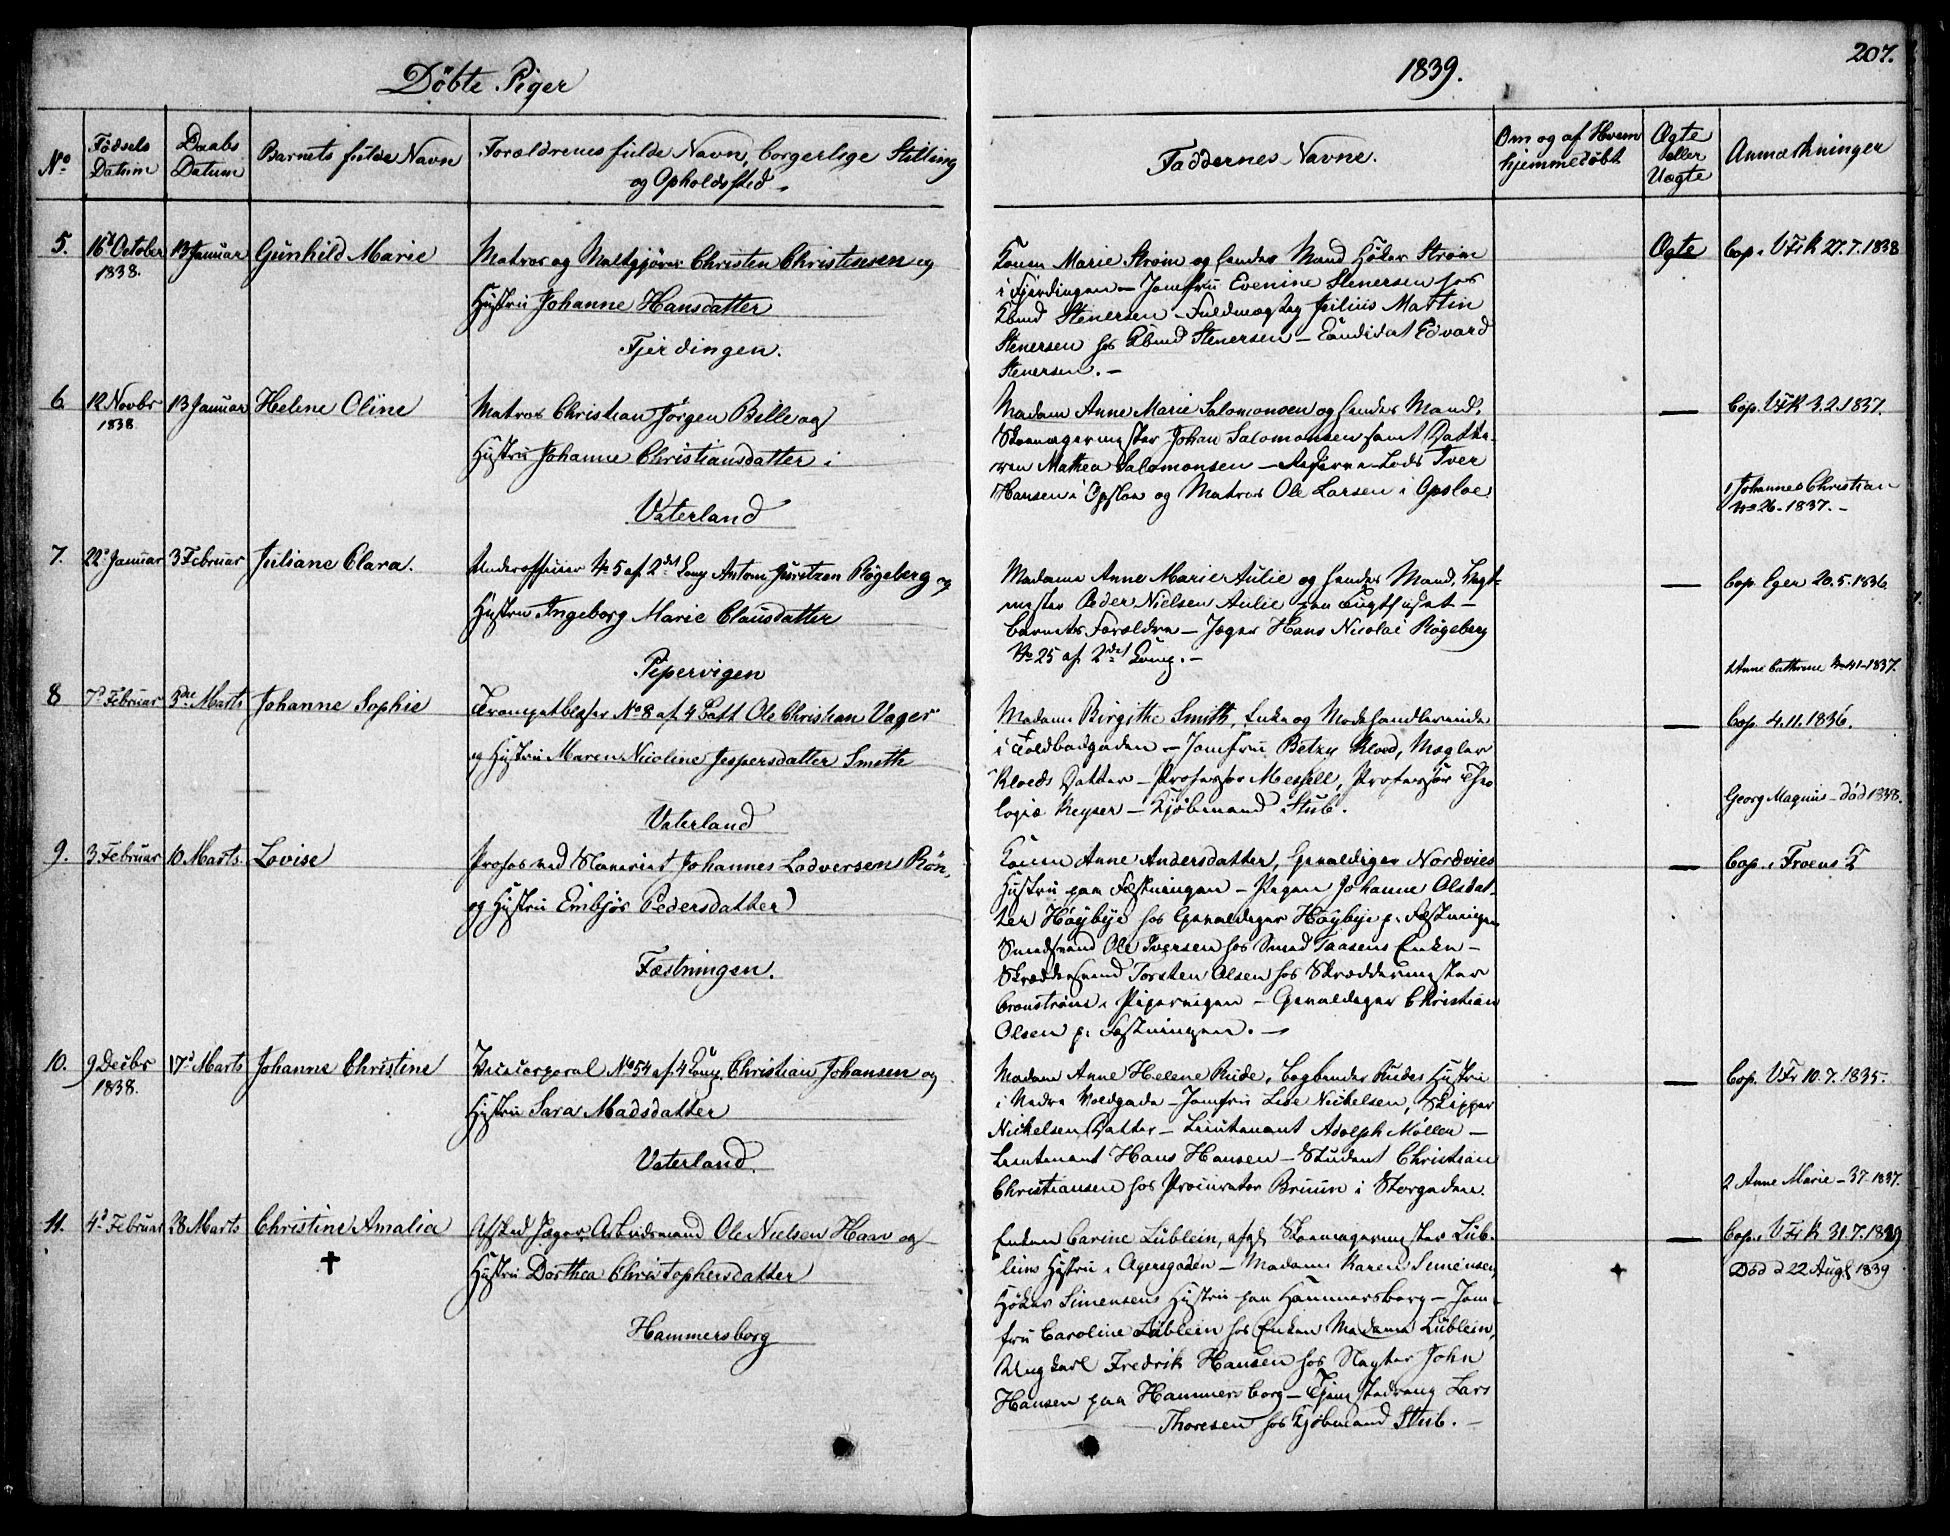 Döbte Piger
1839.
207.
No
Födsels Datum
Daabs Datum
Barnets fulde Navn
Forældrenes fulde Navn, borgerlige Stilling
og Opholdssted
Faddernes Navne.
Om og af Hvem hjemmedöbt
Ægte eller Uægte
Anmærkninger
5. 16d October 13 Januar Gunhild Marie Matros og Christen Christensen og
1838.
Hustru Johanne Hansdatter
Fjerdingen.
Konen Marie Strøm og hendes Mand Høker Strøm
i Fjerdingen – Jomfru Evenine Stenersen hos
Kbmd Stenersen – Fuldmægtig Julius Martin
Stenersen hos Kbmd Stenersen – Candidat Edvard
Stenersen. –
Ægte
Cop. i VFrk 27.7.1838
6. 12 Novbr 13 Januar Helene Oline Matros Christian Jörgen Bille og
1838.
Hustru Johanne Christiansdatter i
Vaterland
Madam Anne Marie Salomonsen og hendes Mand,
Skomagermester Johan Salomonsen samt Datte-
ren Mathea Salomonsen – Lods Iver
Hansen i Opsloe og Matros Ole Larsen i Opsloe
–
Cop. VFrk 3.2.1837.
1 Johannes Christian
No 26. 1837. –
7. 22d Januar 3 Februar Juliane Clara. Underofficier No 5 af 2det Comp Anton Juretzen Røgeberg og
Hustru Ingeborg Marie Clausdatter
Pipervigen
Madame Anne Marie Aulie og hendes Mand, Vagt-
mester Peder Nielsen Aulie paa Tugthuset –
barnets Forældre – Jæger Hans Nicolai Røgeberg
No 25 af 2det Comp. –
–
Cop. Eger 20.5.1836
2 Anne Cathrine No 41-1837.
8 7d Februar 3die Marts Johanne Sophie Trompetblæser No 8 af 4 Batt Ole Christian Vager
og Hustru Maren Nicoline Jespersdatter Smith
Vaterland
Madame Birgithe Smith, Enke og Modehandlerinde
i Toldbodgaden – Jomfru Betzy Kloed, Mægler
Kloeds Datter – Professor Messell, Professor Theo
logiæ Keyser – Kjøbmand Stub.
–
Cop. 4.11.1836.
Georg Magnus – död 1838.
9. 3 Februar 10 Marts Lovise Profos ved Slaveriet Johannes Lodversen Rön,
og Hustru Embjör Pedersdatter
Fæstningen.
Konen Anne Andersdatter, Gevaldiger Nordvies
Hustru paa Fæstningen – Pigen Johanne Olsdat-
ter Höybye hos Gevaldiger Höybye p. Fæstningen
Smedsvend Ole Iversen hos Smed Taasens Enke –
Skrædersvend Torsten Olsen hos Skræddermester
Cronstrøm i Pipervigen – Gevaldiger Christian
Olsen p. Fæstningen. –
–
Cop. i Froens
10. 9 Decbr 17d Marts Johanne Christine Vicecorporal No 54 af 4 Comp. Christian Johansen og
1838.
Hustru Sara Madsdatter
Vaterland.
Madam Anne Helene Rude, Bogbinder Rudes Hustru
i Nedre Voldgade – Jomfru Lise Nickelsen, Skipper
Nickelsen Datter – Lieutenant Adolph Møller –
Lieutenant Hans Hansen – Student Christian
Christiansen hos Procurator Bruun i Storgaden.
–
Cop. VFr 10.7.1835.
2 Anne Marie – 37-1837.
11. 4d Februar 28 Marts Christine Amalia Afsked Jæger, Arbeidsmand Ole Nielsen Haar og
✝
Hustru Dorthea Christophersdatter
Hammersborg
Enken Carine Lüblein, afgl. Skomagermester Lüb-
leins Hustru i Agersgaden – Madame Karen Simensen,
Høker Simensens Hustru paa Hammersborg – Jom-
fru Caroline Lüblein hos Enken Madame Lüblein,
Ungkarl Fredrik Hansen hos Slagter John
Hansen paa Hammersborg – Tjenestedreng Lars
Thoresen hos Kjøbmand Stub. –
–
Cop. i VFrk 31.7.1829
Död d 22 Augs 1839